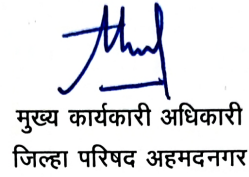 मुख्य कार्यकारी अधिकारी
जिल्हा परिषद अहमदनगर